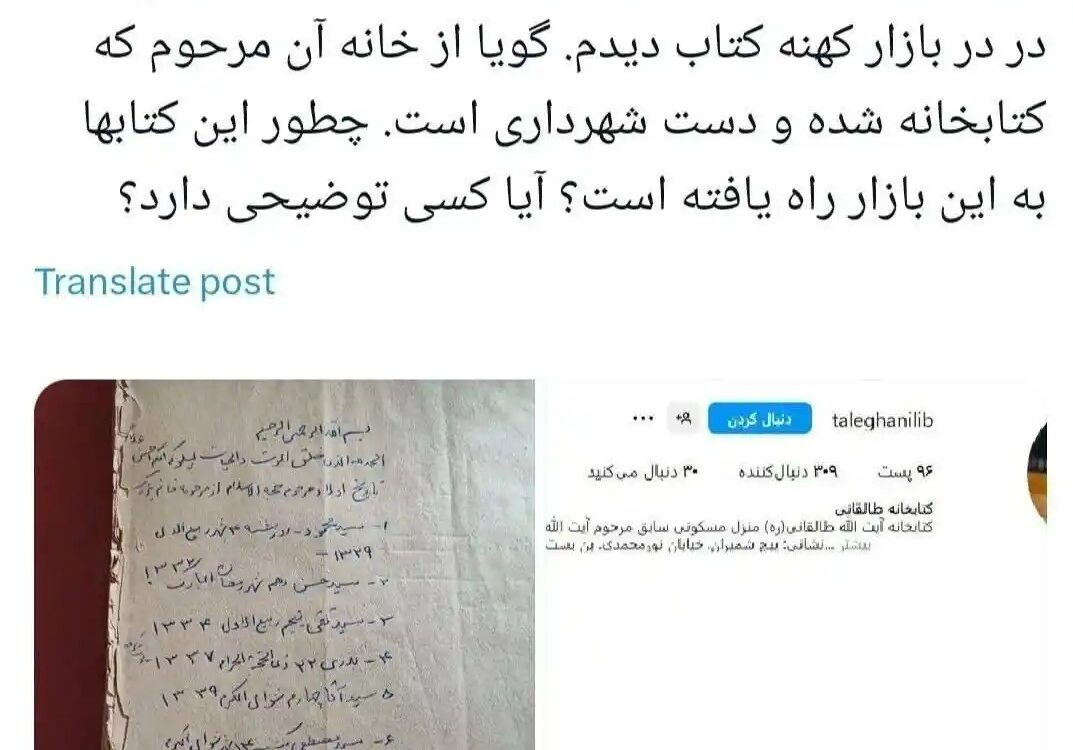 در در بازار کهنه کتاب دیدم. گویا از خانه آن مرحوم که
کتابخانه شده و دست شهرداری است. چطور این کتابها
به این بازار راه یافته است؟ آیا کسی توضیحی دارد؟
Translate post
بسم الله الرحمن الرحیم
الحمدلله الذی خلق الموت والحیات لیبلوکم ایکم احسن
تاریخ اولاد مرحوم حجة الاسلام از مرحومه خانم بزرگ
۱- سید محمود - ربیع الاول
۱۳۲۹ -
۲- سید حسن دهم شهر رمضان المبارک ۱۳۳۲
۳- سید تقی پنجم ربیع الاول ۱۳۳۴
۴- بدری ۲۲ ذی الحجة الحرام ۱۳۳۷
۵ سید آقا چهارم شوال المکرم ۱۳۳۹
۶- سید مصطفی شوال المکرم
taleghanilib
دنبال کردن
...
۹۶ پست ۳۰۹ دنبال‌کننده ۳۰ دنبال می‌کنید
کتابخانه طالقانی
کتابخانه آیت الله طالقانی(ره) منزل مسکونی سابق مرحوم آیت الله
...نشانی: پیچ شمیران، خیابان نورمحمدی، بن بست بیشتر